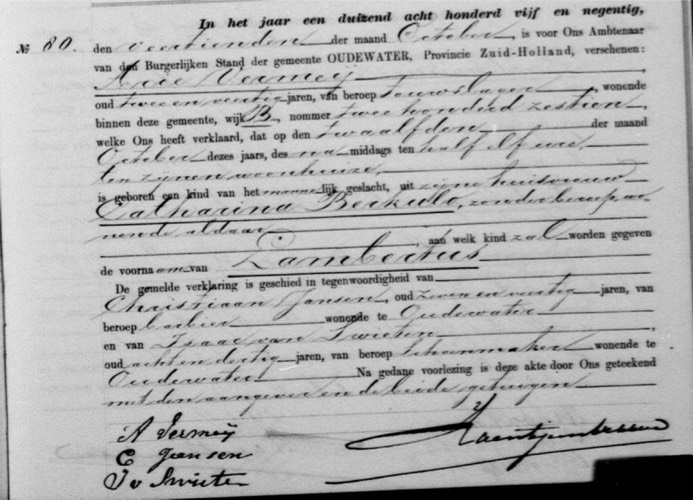 In het jaar een duizend acht honderd vijf en negentig,
№ 80. den veertienden der maand October is voor Ons Ambtenaar
van den Burgerlijken Stand der gemeente OUDEWATER, Provincie Zuid-Holland, verschenen:
Arie Vermeij
oud twee en veertig jaren, van beroep touwslager, wonende
binnen deze gemeente, wijk B, nommer twee honderd zestien
welke Ons heeft verklaard, dat op den twaalfden der maand
October dezes jaars, des na middags ten half elf ure,
ten zijnen woonhuize
is geboren een kind van het mannelijk geslacht, uit zijne huisvrouw
Catharina Berkulo, zonder beroep wo-
nende aldaar
, aan welk kind zal worden gegeven
de voornaam van Lambertus
De gemelde verklaring is geschied in tegenwoordigheid van
Christiaan Jansen, oud zeven en veertig jaren, van
beroep barbier wonende te Oudewater
en van Isaac van Swieten,
oud acht en dertig jaren, van beroep schoenmaker wonende te
Oudewater Na gedane voorlezing is deze akte door Ons geteekend
met den aangever en de beide getuigen
A Vermeij
C Jansen
I v Swieten